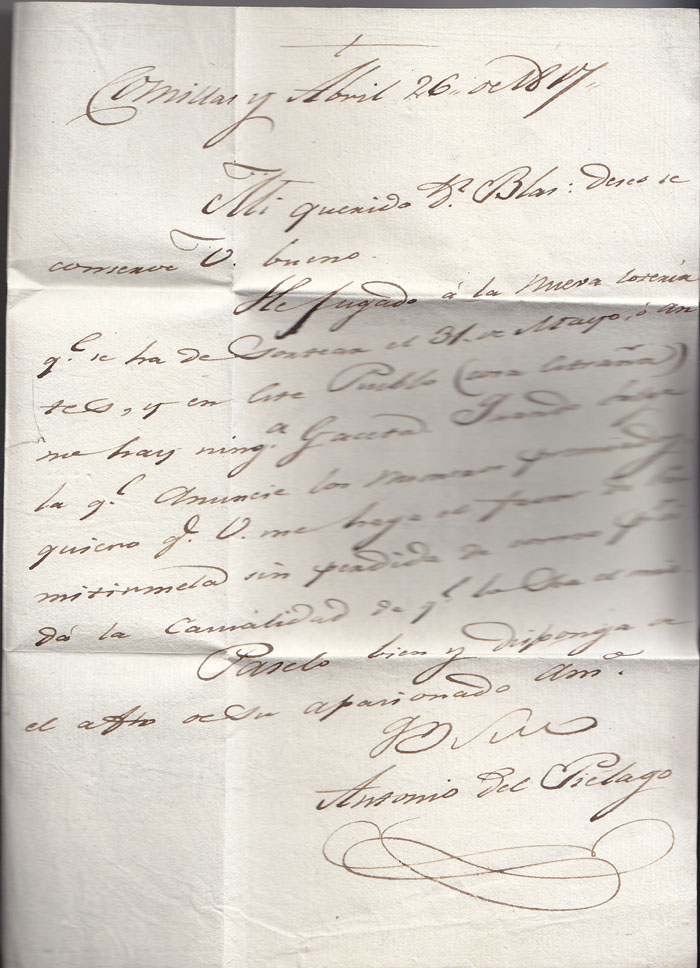 Comillas y Abril 26. de 1817.
Mi querido Dn. Blas: deseo se
conserve V. bueno.
He jugado á la nueva loteria
qe. se ha de Sortear el 31. de Mayo, ó an
tes, y en este Pueblo (cosa estraña)
no hay ninga. Gaceta.
la qe. Anuncie los numeros
quiero qe. V. me haga el favor de
mitirmela sin perdida de correo
dá la Casualidad de qe. la
Paselo bien y disponga a
el afto de su apasionado Amo.
Antonio del Pielago